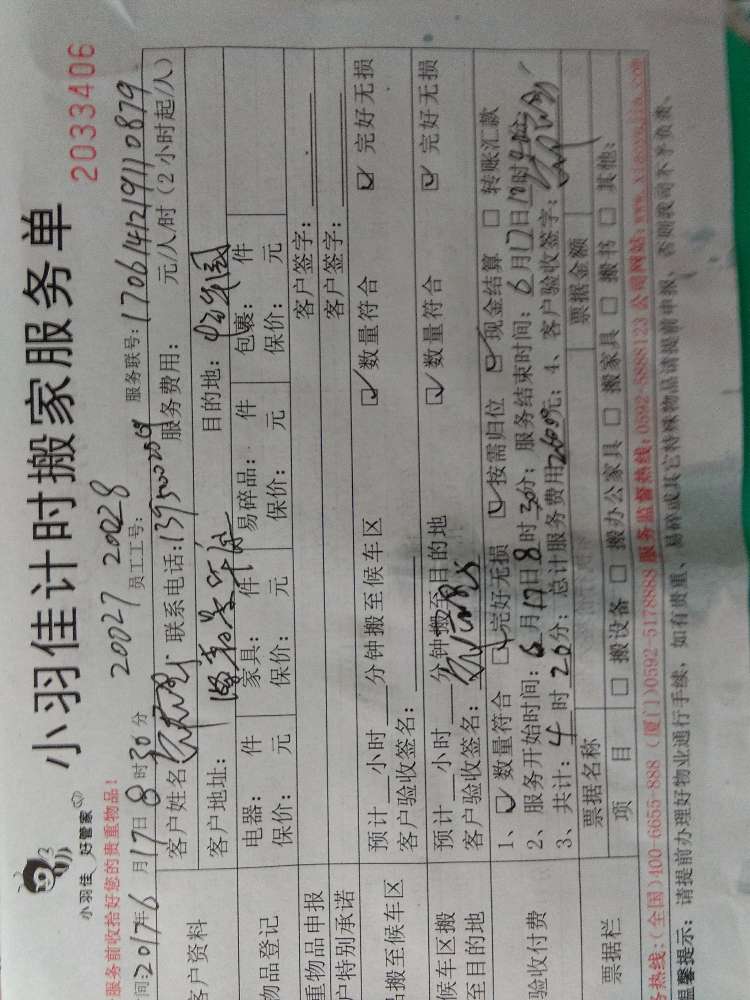 小羽佳 好管家
小羽佳计时搬家服务单
2033406
服务前收拾好您的贵重物品!
20027 20028
间:2017年6月17日8时30分 员工工号: 服务联号:1706141219110879
客户资料
客户姓名 联系电话: 服务费用: 元/人/时(2小时起/人)
客户地址: 目的地:
物品登记
电器: 件 家具: 件 易碎品: 件 包裹: 件
保价: 元 保价: 元 保价: 元 保价: 元
重物品申报 客户签字:
户特别承诺 客户签字:
搬至候车区
预计 小时 分钟搬至候车区 ☑数量符合 ☑完好无损
客户验收签名:
候车区搬至目的地
预计 小时 分钟搬至目的地 ☑数量符合 ☑完好无损
客户验收签名:
验收付费
1、☑数量符合 ☑完好无损 ☑按需归位 ☑现金结算 □转账汇款
2、服务开始时间:6月17日8时30分;服务结束时间:6月17日12时
3、共计:4时20分;总计服务费用 元;4、客户验收签字:
票据栏
票据名称 票据金额
项目 □搬设备 □搬办公家具 □搬家具 □搬书 □其他:
热线:(全国)400-6655-888 (厦门)0592-5178888 服务监督热线:0592-5888123 公司网站:www.xiaoyujia.com
温馨提示:请提前办理好物业通行手续,如有贵重、易碎或其它特殊物品请提前申报,否则我司不予负责。